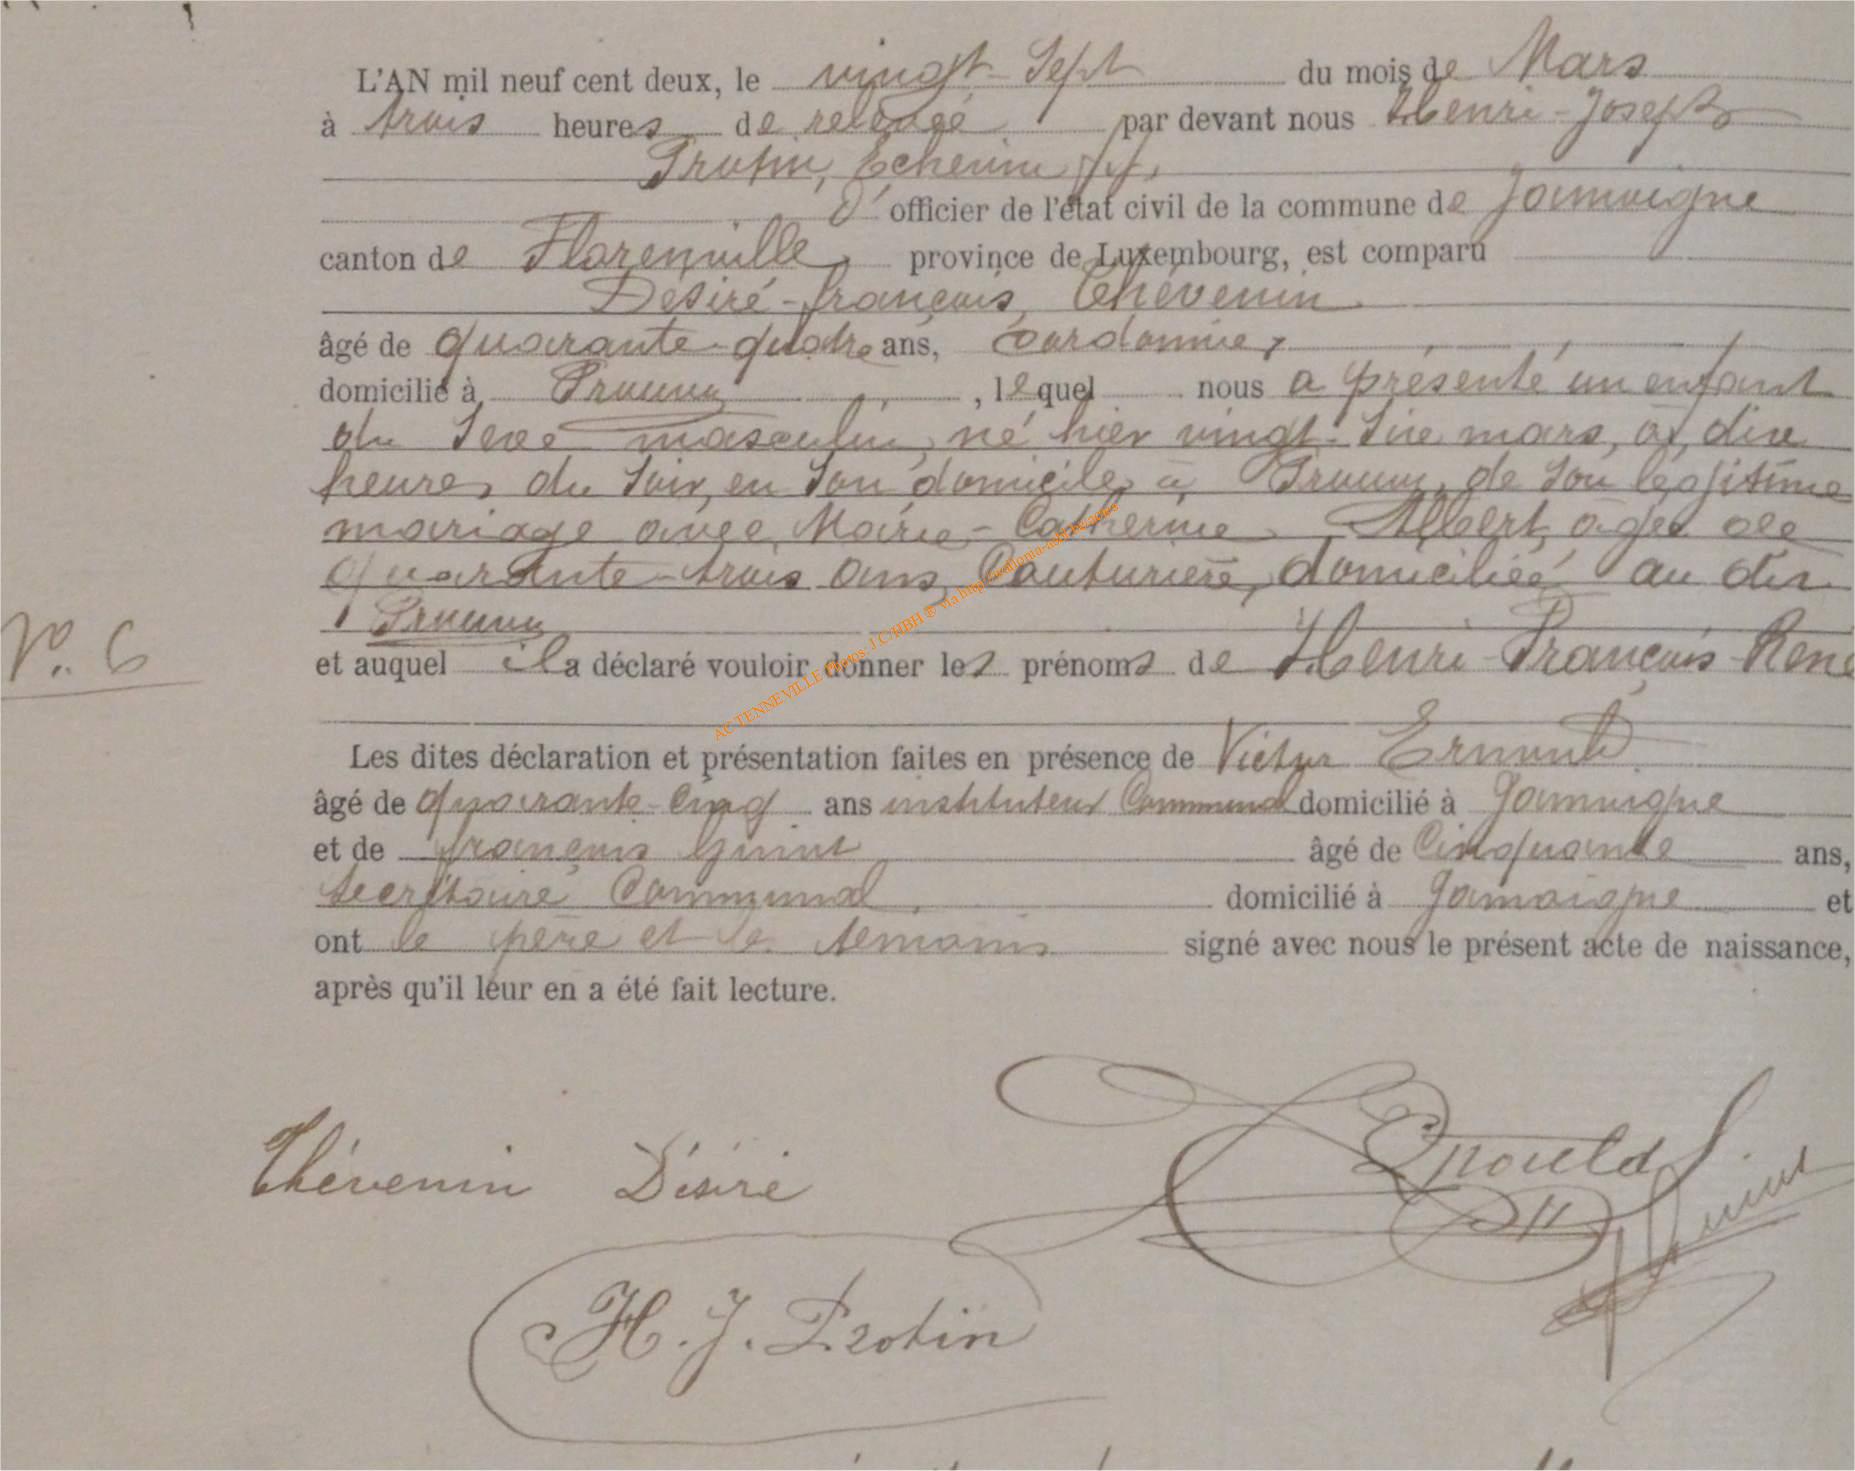 L'AN mil neuf cent deux, le vingt-Sept du mois de Mars
à trois heures de relevée par devant nous Henri-Joseph
Protin, Echevin ff.
d' officier de l'état civil de la commune de Jamoigne
canton de Florenville, province de Luxembourg, est comparu
Désiré-François Thévenin
âgé de quarante-quatre ans, Cordonnier
domicilié à Prouvy, lequel nous a présenté un enfant
du Sexe masculin, né hier vingt-Six mars, à dix
heures du Soir, en Son domicile à Prouvy, de Son légitime
mariage avec Marie-Catherine Albert, âgée de
quarante-trois ans, Couturière, domiciliée au dit
Prouvy
No. 6
et auquel il a déclaré vouloir donner les prénoms de Henri François René
Les dites déclaration et présentation faites en présence de Victor
âgé de quarante-cinq ans instituteur Communal domicilié à Jamoigne
et de François âgé de Cinquante ans,
Secrétaire Communal domicilié à Jamoigne et
ont le père et les témoins signé avec nous le présent acte de naissance,
après qu'il leur en a été fait lecture.
Thévenin Désiré
H. J. Protin
AC TENNEVILLE Photos: J.C. HBH ® via